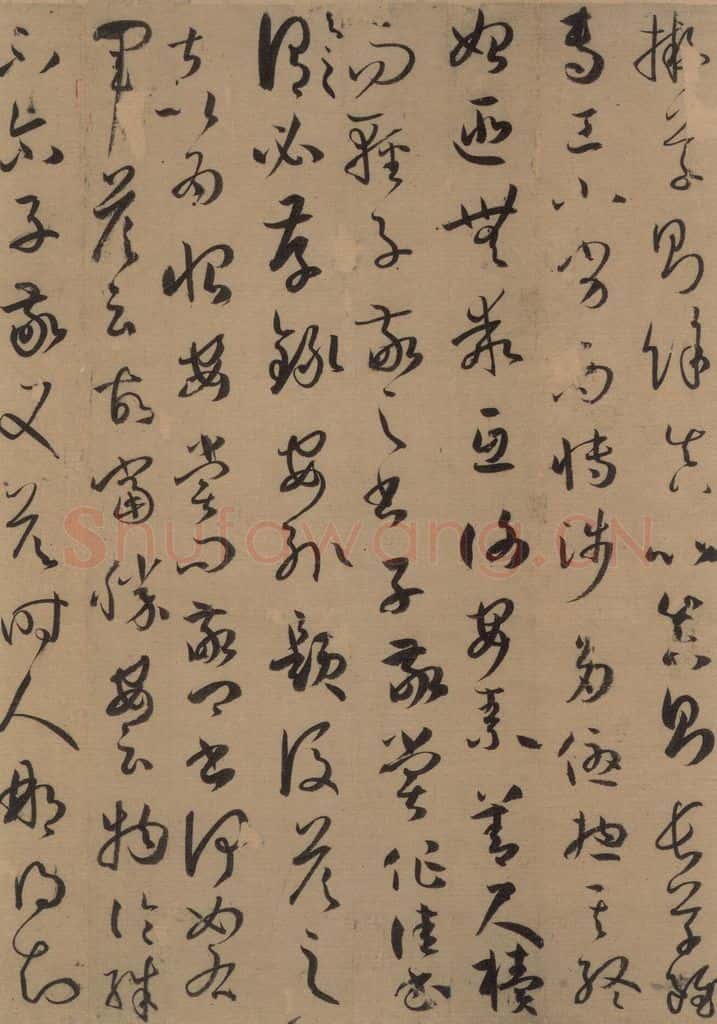 擬草則餘真比真則長草雖
專工小劣而博涉多優揔其終
始匪無乖互謝安素善尺牘
而輕子敬之書子敬嘗作佳書
與之謂必存錄安輒題後答之
甚以為恨安嘗問敬卿書何如右
軍答云故當勝安云物論殊
不尒子敬又答時人那得知
Shufawang.CN